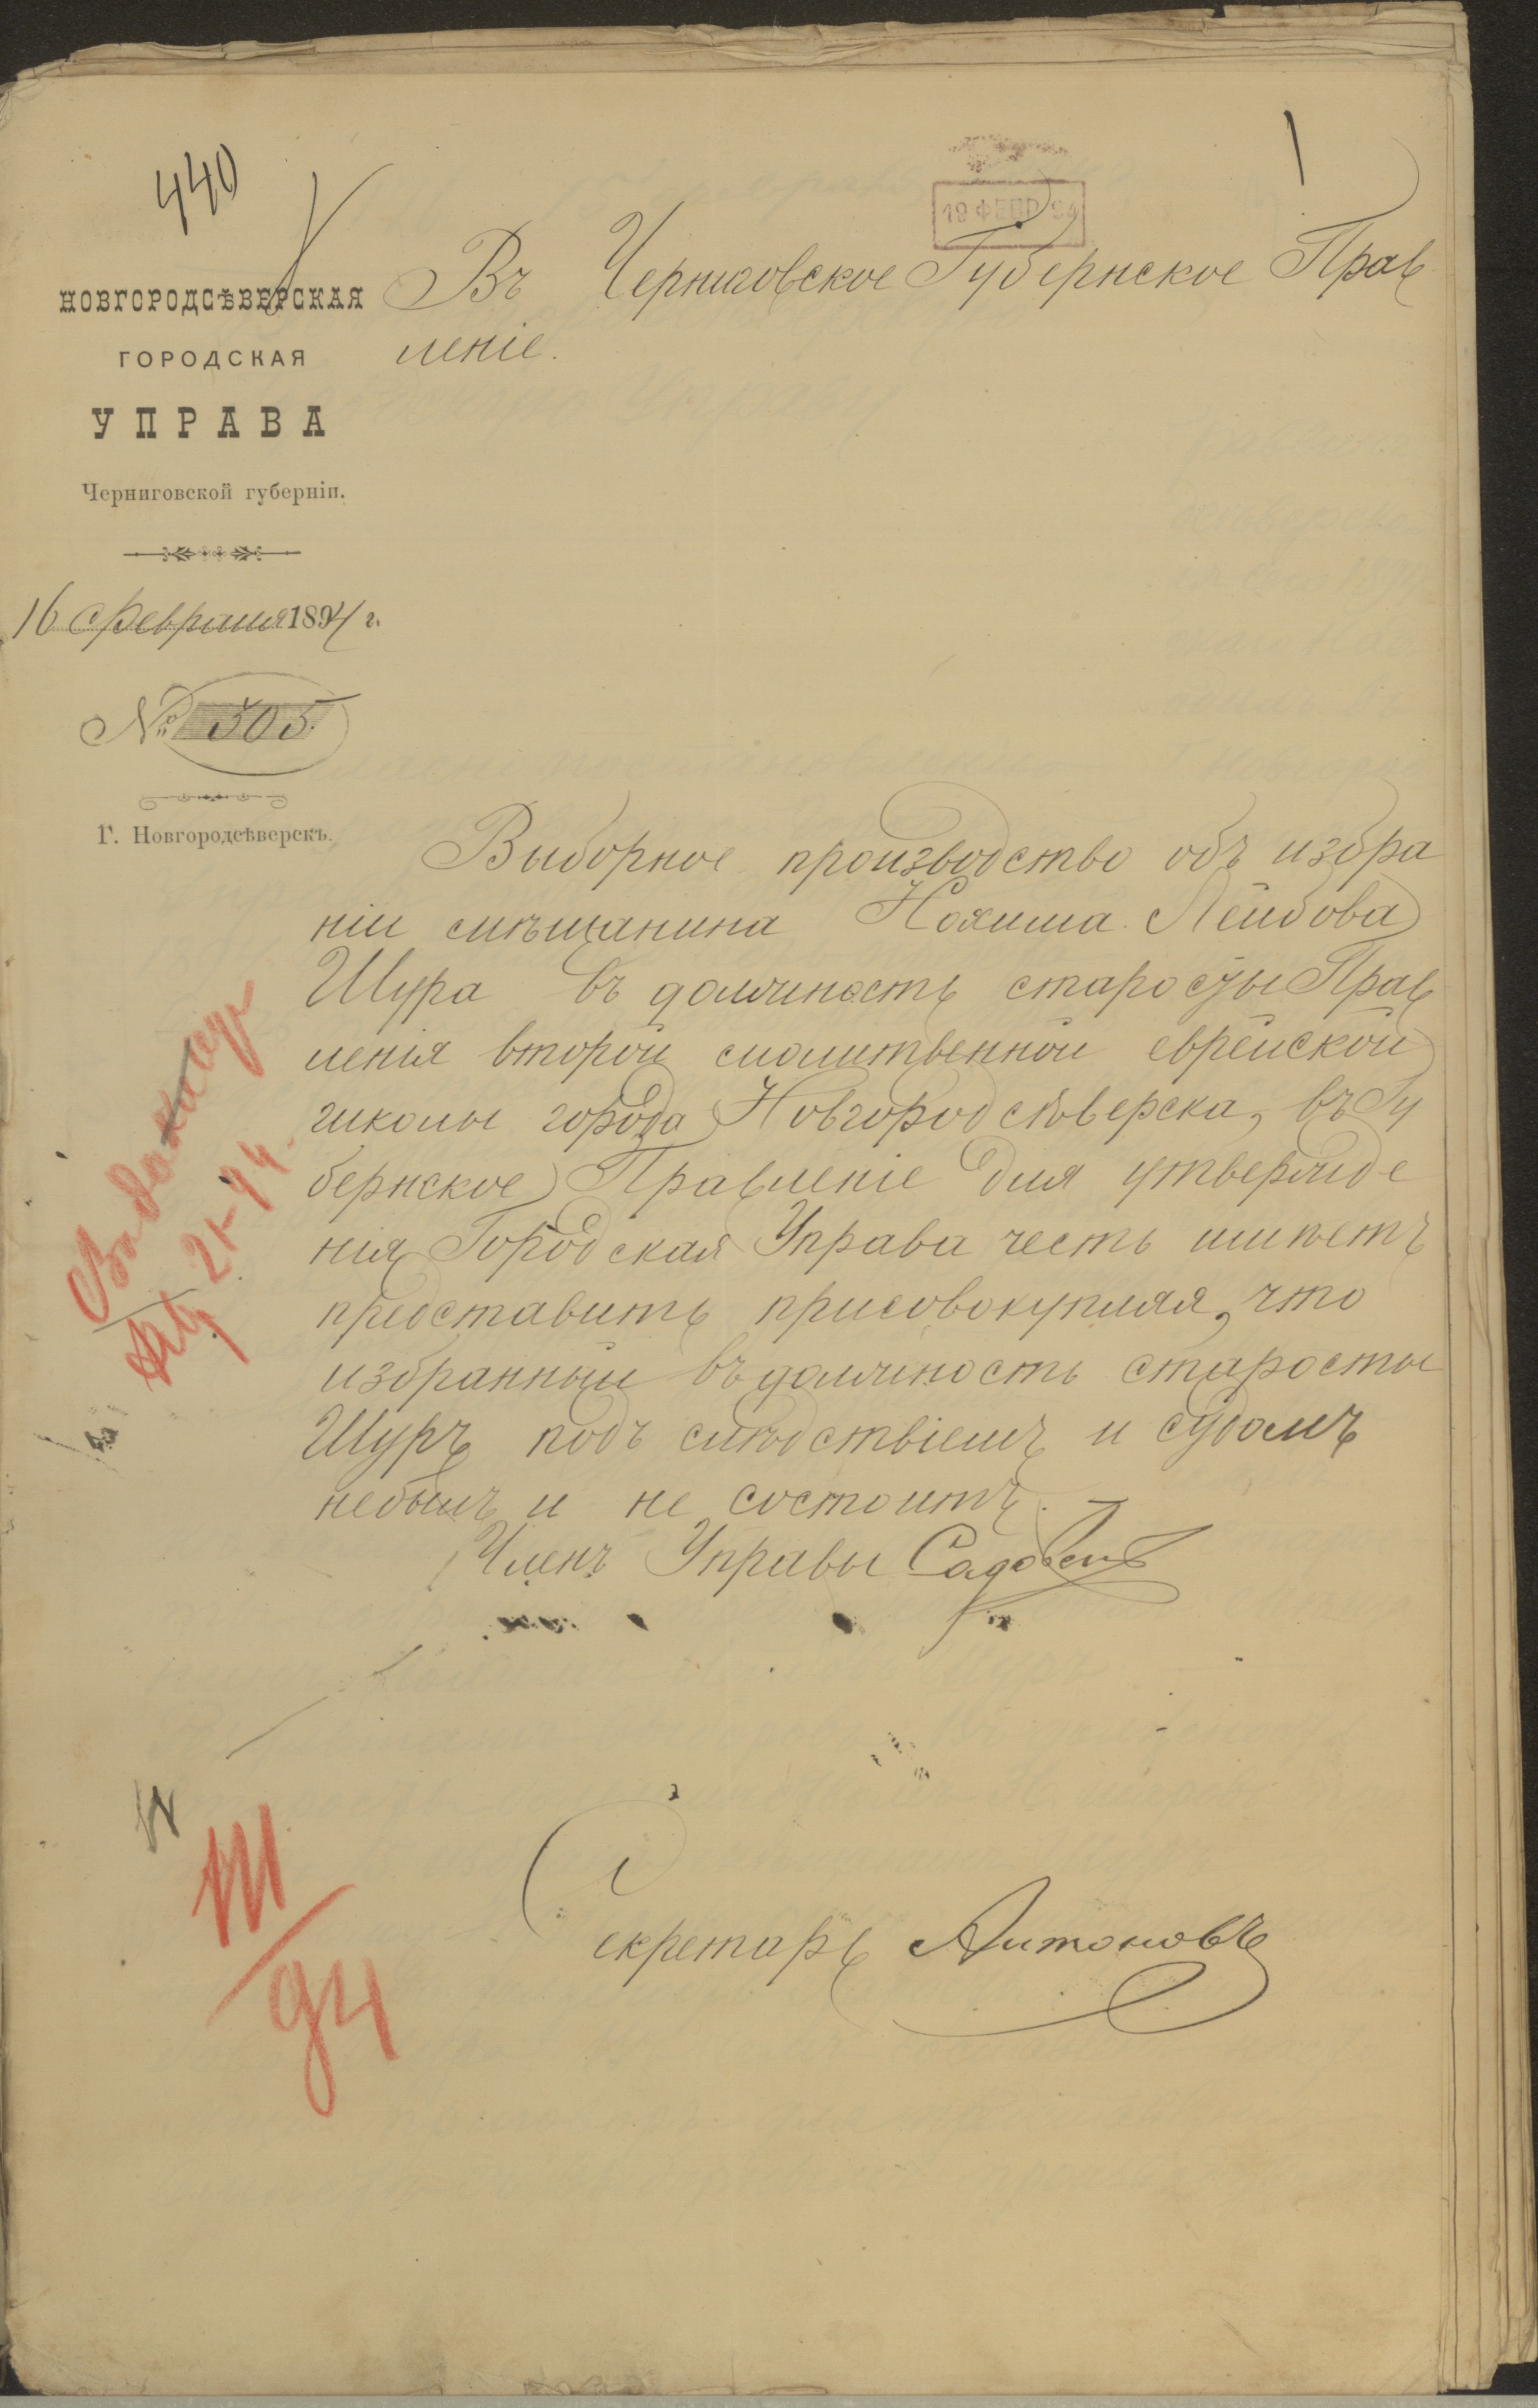 440
1
19 ФЕВР 94
НОВГОРОДСѢВЕРСКАЯ
ГОРОДСКАЯ
УПРАВА
Черниговской губерніи.
16 Февраля 1894 г.
№ 505
Г. Новгородсѣверскъ.
Въ Черниговское Губернское Прав
леніе.
Выборное производство объ избра
ніи мѣщанина Нохима Лейбова
Шура въ должность старосты Прав
ленія второй молитвенной еврейской
школы города Новгородсѣверска, въ Гу
бернское Правленіе для утвержде
нія Городская Управа честь имѣетъ
представить присовокупляя, что
избранный въ должность старосты
Шуръ подъ слѣдствіемъ и судомъ
небылъ и не состоитъ.
Членъ Управы
Секретарь Антоновъ
21 94
94